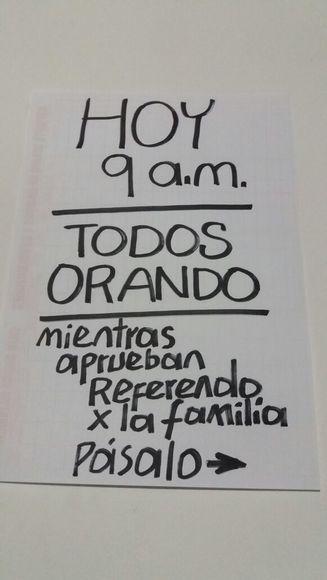 HOY
9 a.m.
TODOS
ORANDO
mientras
aprueban
Referendo
x la familia
Pásalo →